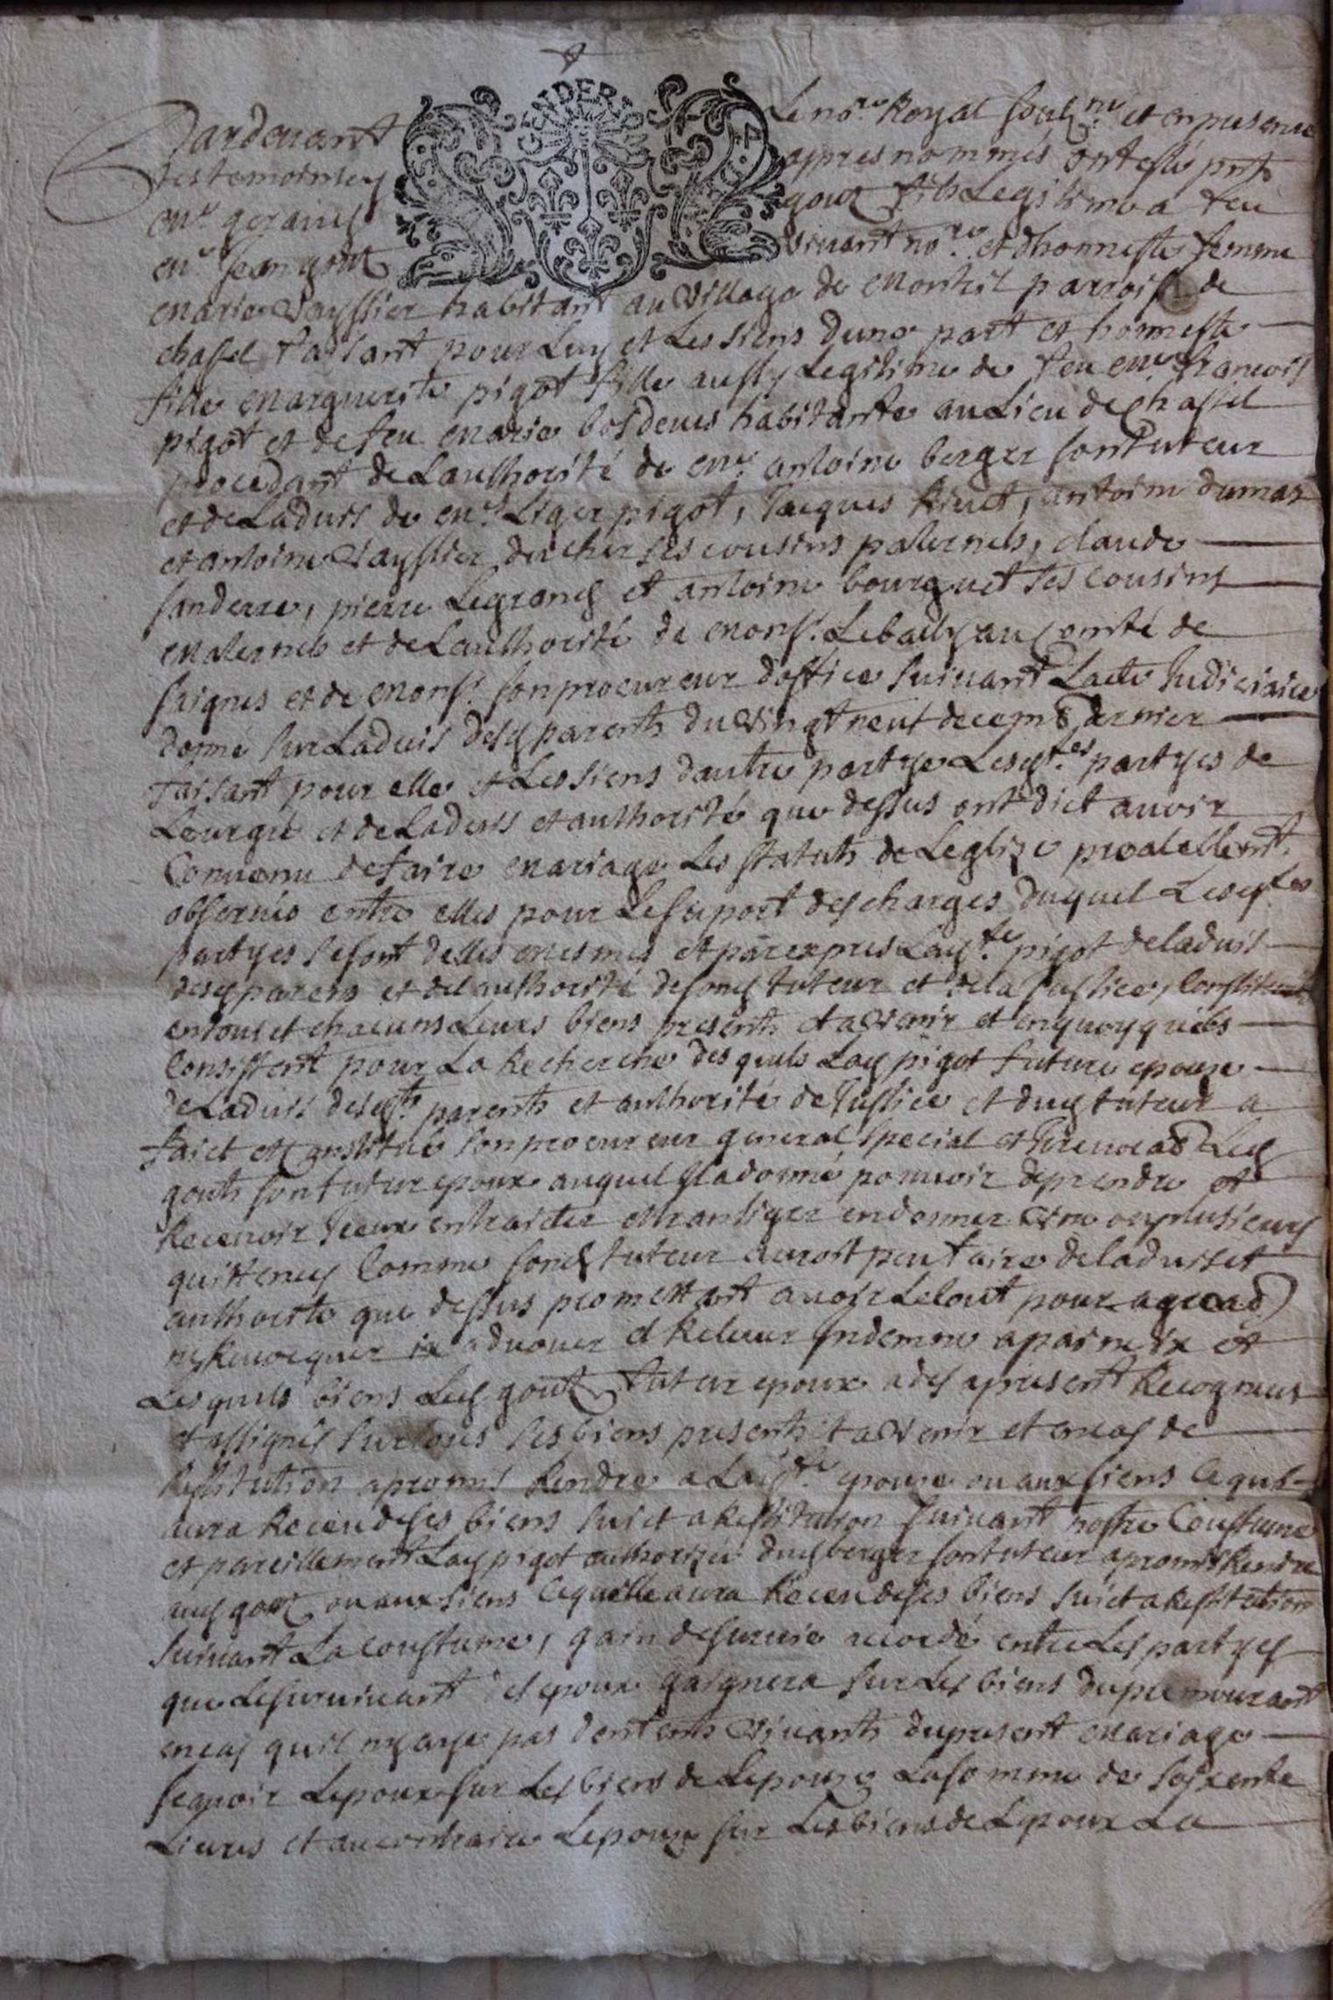 GENDERIO
Pardevant Le no.re Royal soubz.ne et en presence
des temoins cy apres nommés ont esté pnts
me geraud gout fils Legitime a feu
me Jean gout vivant no.re et dhonneste femme
marie Vayssier habitant au village de montril parroisse de
chastel faisant pour Luy et Les siens dune part et honneste
fille marguerite pigot fille aussy Legitime de feu me francois
pigot et de feu marie bosdeves habitante au Lieu de chastel
procedant de Lauthorité de me antoine berger son tuteur
et de Ladvis de me Liger pigot, Jacques , antoine dumas
et antoine Vayssier ducher ses cousins paternels, claude
sanderre, pierre Legrand et antoine bourguet ses cousins
maternels et de Lauthorité de monsr. Lebailly au Comté de
saignes et de monsr. son procureur doffice suivant Lacte Judiciaire
donné sur Ladvis desd parents du vingt neuf decemb dernier
faisant pour elle et Les siens dautre partye Lesqt.es partyes de
Leur gré et de Ladvis et authorité que dessus ont dict avoir
Convenu de faire mariage Les statuts de Leglize prealablemt.
observés entre elles pour Le suport des charges duquel Lesqt.es
partyes se sont delles mesmes et par expres Lad.te pigot de ladvis
desd parens et de lauthorité de sond tuteur et de la Justice, Constituée
en tous et chacuns Leurs biens presents et a venir et en quoy quils
Consistent pour La Recherche desquels Lad pigot future epouse
de Ladvis desqts parents et authorité de Justice et dud tuteur a
faict et Constitué son procureur general, special et Led
gout son futur epoux auquel ella donné pouvoir de prendre et
Recevoir Iceux en traicter et transiger en donner une ou plusieurs
quittences Comme sond tuteur auroit peu faire de ladvis et
authorité que dessus promettant avoir Letout pour agread
ny Revocquer ix advouer et Relever Indemne a paine ix et
Lesquels biens Led gout futur epoux a des apresent Recognus
et assignés sur tous ses biens presents et a venir et en cas de
Restitution a promis Rendre a Lad.te epouse ou aux siens Ce quil
aura Receu de ses biens suiet a Restitution suivant nostre Coustume
et pareillement Lad pigot authorizée dud berger son tuteur a promis Rendre
aud gout ou aux siens Ce quelle aura Receu de ses biens suiet a Restitution
suivant La Coustume, gain de survie accordé entre Les partyes
que Le survivant des epoux gaignera sur Les biens du premourant
en cas quil ny aye pas denfents vivants du present mariage
scavoir Lepoux sur Les biens de Lepouze La somme de soixente
Livres et au contraire Lepouze sur Les biens de Lepoux La